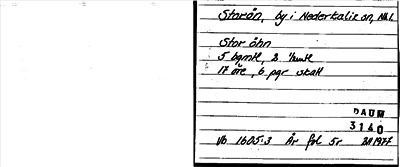 Storön, by i Nederkalix sn, Nbl
Stor öhn
5 bgmtl, 2 ¼mtl
17 öre, 6 pgr skatt
DAUM
3140
Vb 1605:3 År fol 5r